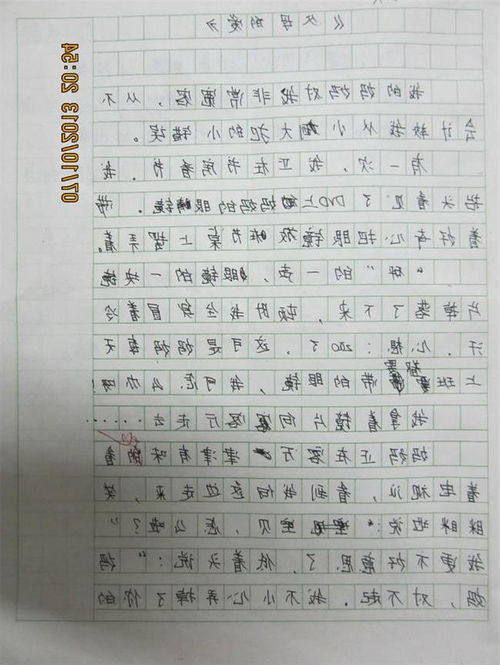 《父母的爱》
我的妈妈对我非常宽容，从不
会计较我从小到大犯的小错误。
有一次，我正在书房看书。我
抬头看见了DVD上妈妈的眼镜。带
着好奇心把眼镜放在书桌上摆弄着。
的一声，眼镜的一块镜
片掉落了下来，顿时我全身冒着冷
汗。心想：200了。这可是妈妈每天
上班都要带的眼镜，我可怎么办啊
我拿着镜片向客厅走去……
妈妈正在客厅津津有味的看
着电视，看到我向她边走来，笑
眯眯地说：“宝贝，怎么啦？”
我更不好意思了，低着头说：“妈
妈，对不起。我不小心弄掉了你的
07/01/2013 20:45